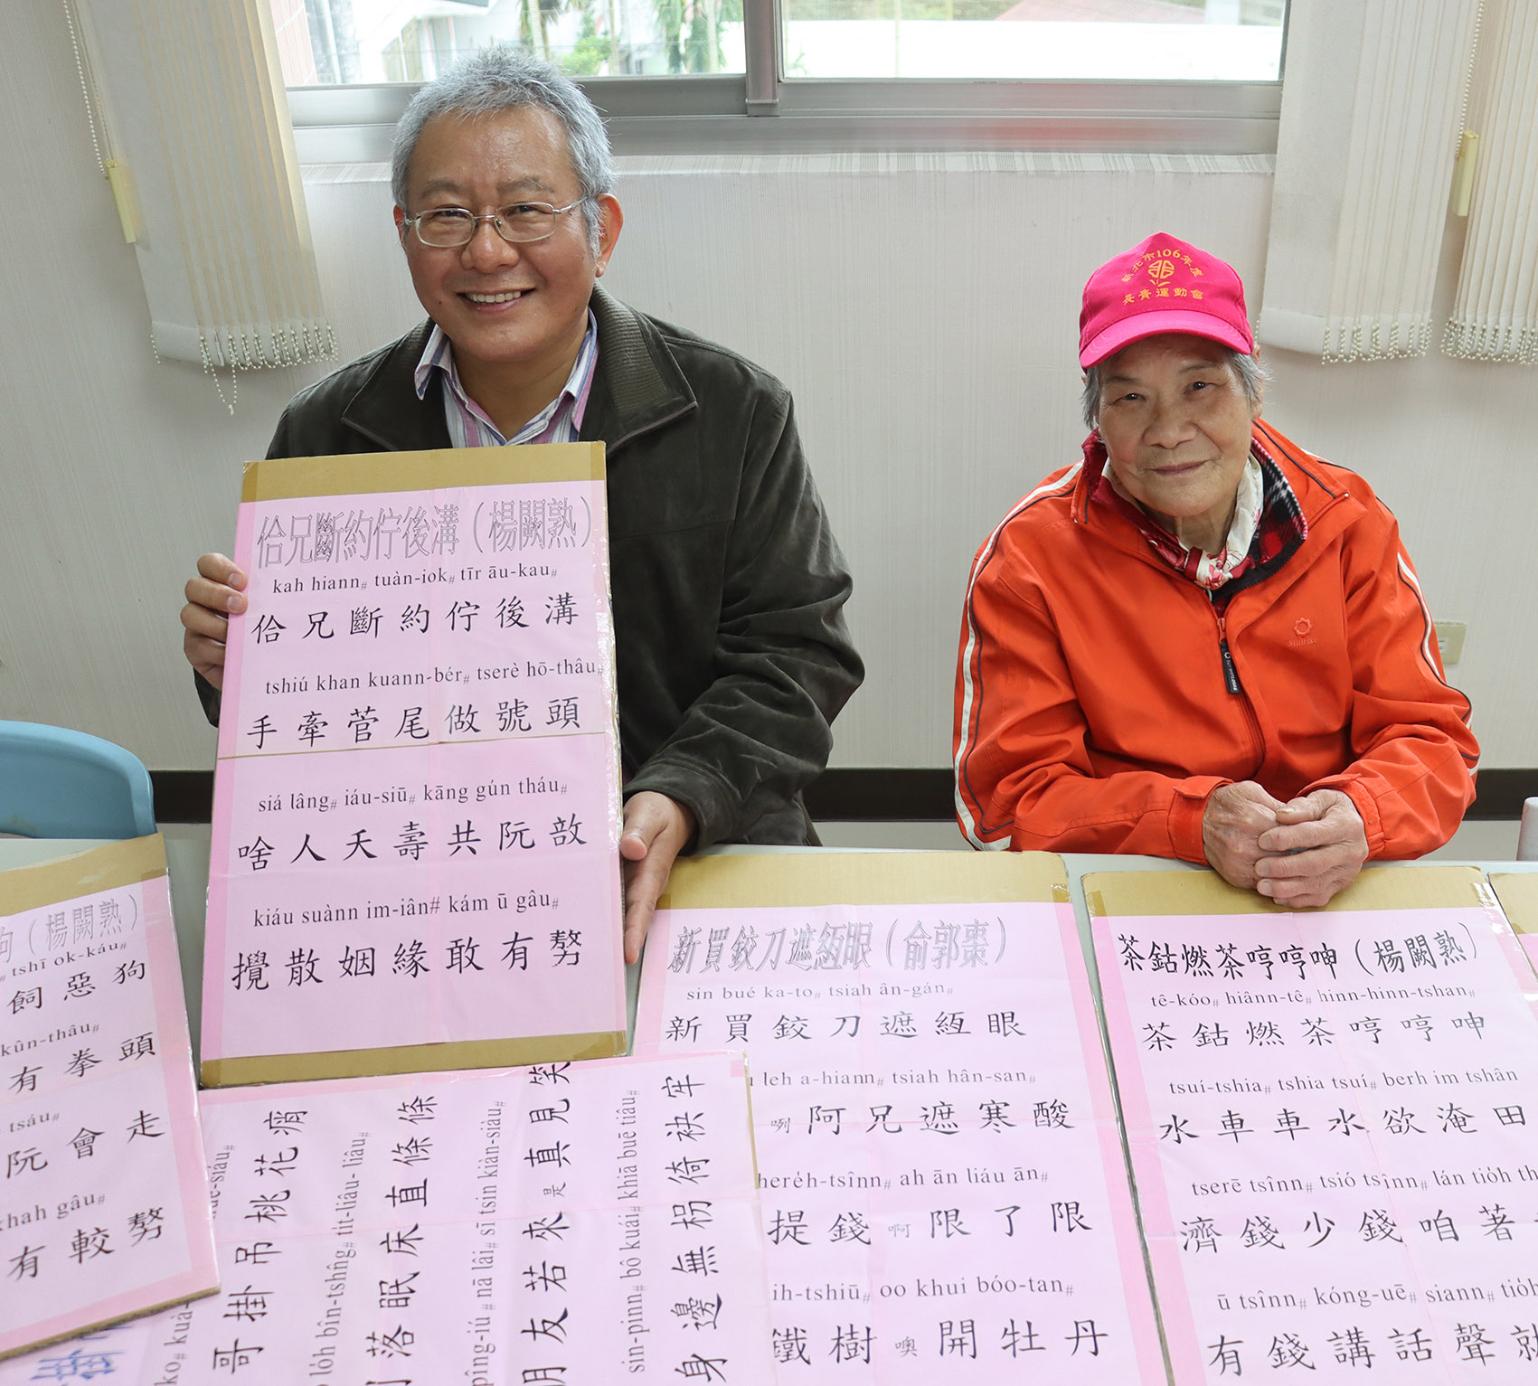 新北市106年度
長青運動會
佮兄斷約佇後溝（楊闕熟）
kah hiann# tuàn-iok# tīr āu-kau#
佮兄斷約佇後溝
tshiú khan kuann-bér# tserè hō-thâu#
手牽菅尾做號頭
siá lâng# iáu-siū# kāng gún tháu#
啥人夭壽共阮敨
kiáu suànn im-iân# kám ū gâu#
攪散姻緣敢有勥
狗（楊闕熟）
tshī ok-káu#
飼惡狗
kûn-thâu#
有拳頭
tsáu#
阮會走
khah gâu#
有較勥
新買鉸刀遮絚眼（俞郭棗）
sin bué ka-to# tsiah ân-gán#
新買鉸刀遮絚眼
leh a-hiann# tsiah hân-san#
咧阿兄遮寒酸
ah ān liáu ān#
提錢啊限了限
ih-tshiū# oo khui bóo-tan#
鐵樹噢開牡丹
茶鈷燃茶哼哼呻（楊闕熟）
tê-kóo# hiânn-tê# hinn-hinn-tshan#
茶鈷燃茶哼哼呻
tsuí-tshia# tshia tsuí# berh im tshân
水車車水欲淹田
tserē tsînn# tsió tsînn# lán tio̍h
濟錢少錢咱著
ū tsînn# kóng-uē# siann# tio̍h
有錢講話聲就
哥掛吊桃花
lo̍h bîn-tshn̂g# ti̍t-liâu-liâu#
落眠床直條條
pîng-iú# nā lâi# sī tsin kiàn-siàu#
朋友若來是真見笑
sin-pinn# bô kuái# khiā buē tiâu#
身邊無柺徛袂牢